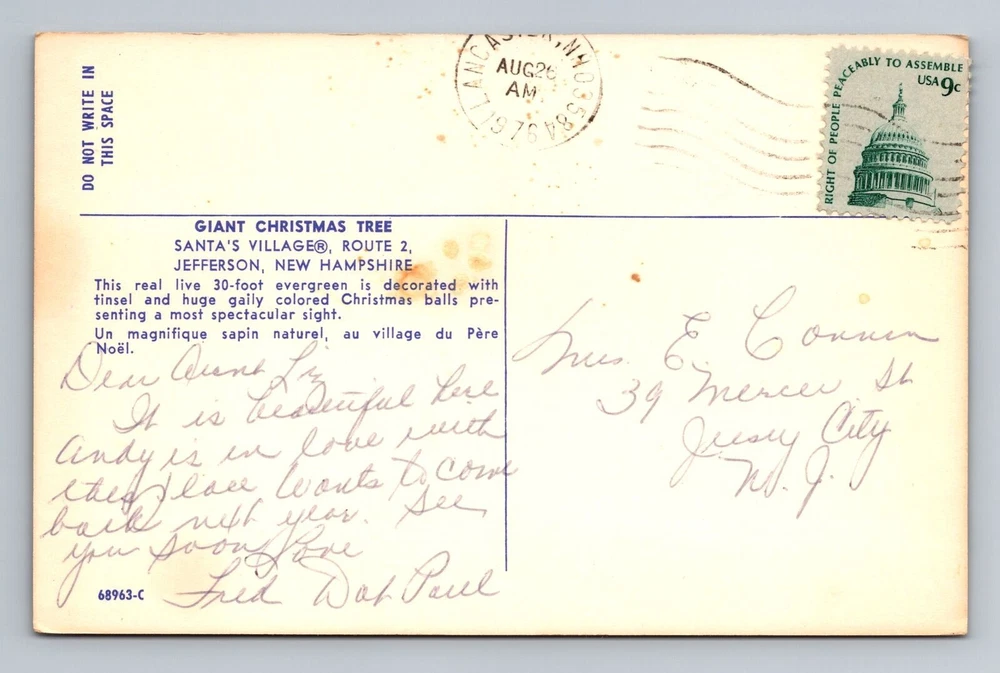 DO NOT WRITE IN
THIS SPACE
LANCASTER, NH 03584
AUG 26
AM
1976
RIGHT OF PEOPLE PEACEABLY TO ASSEMBLE
USA 9c
GIANT CHRISTMAS TREE
SANTA'S VILLAGE®, ROUTE 2,
JEFFERSON, NEW HAMPSHIRE
This real live 30-foot evergreen is decorated with
tinsel and huge gaily colored Christmas balls pre-
senting a most spectacular sight.
Un magnifique sapin naturel, au village du Père
Noël.
Dear Aunt Liz
It is beautiful here
Andy is in love with
this place wants to come
back next year. See
you soon Love
Fred Dot Paul
68963-C
Mrs. E. Connin
39 Mercer St
Jersey City
N. J.